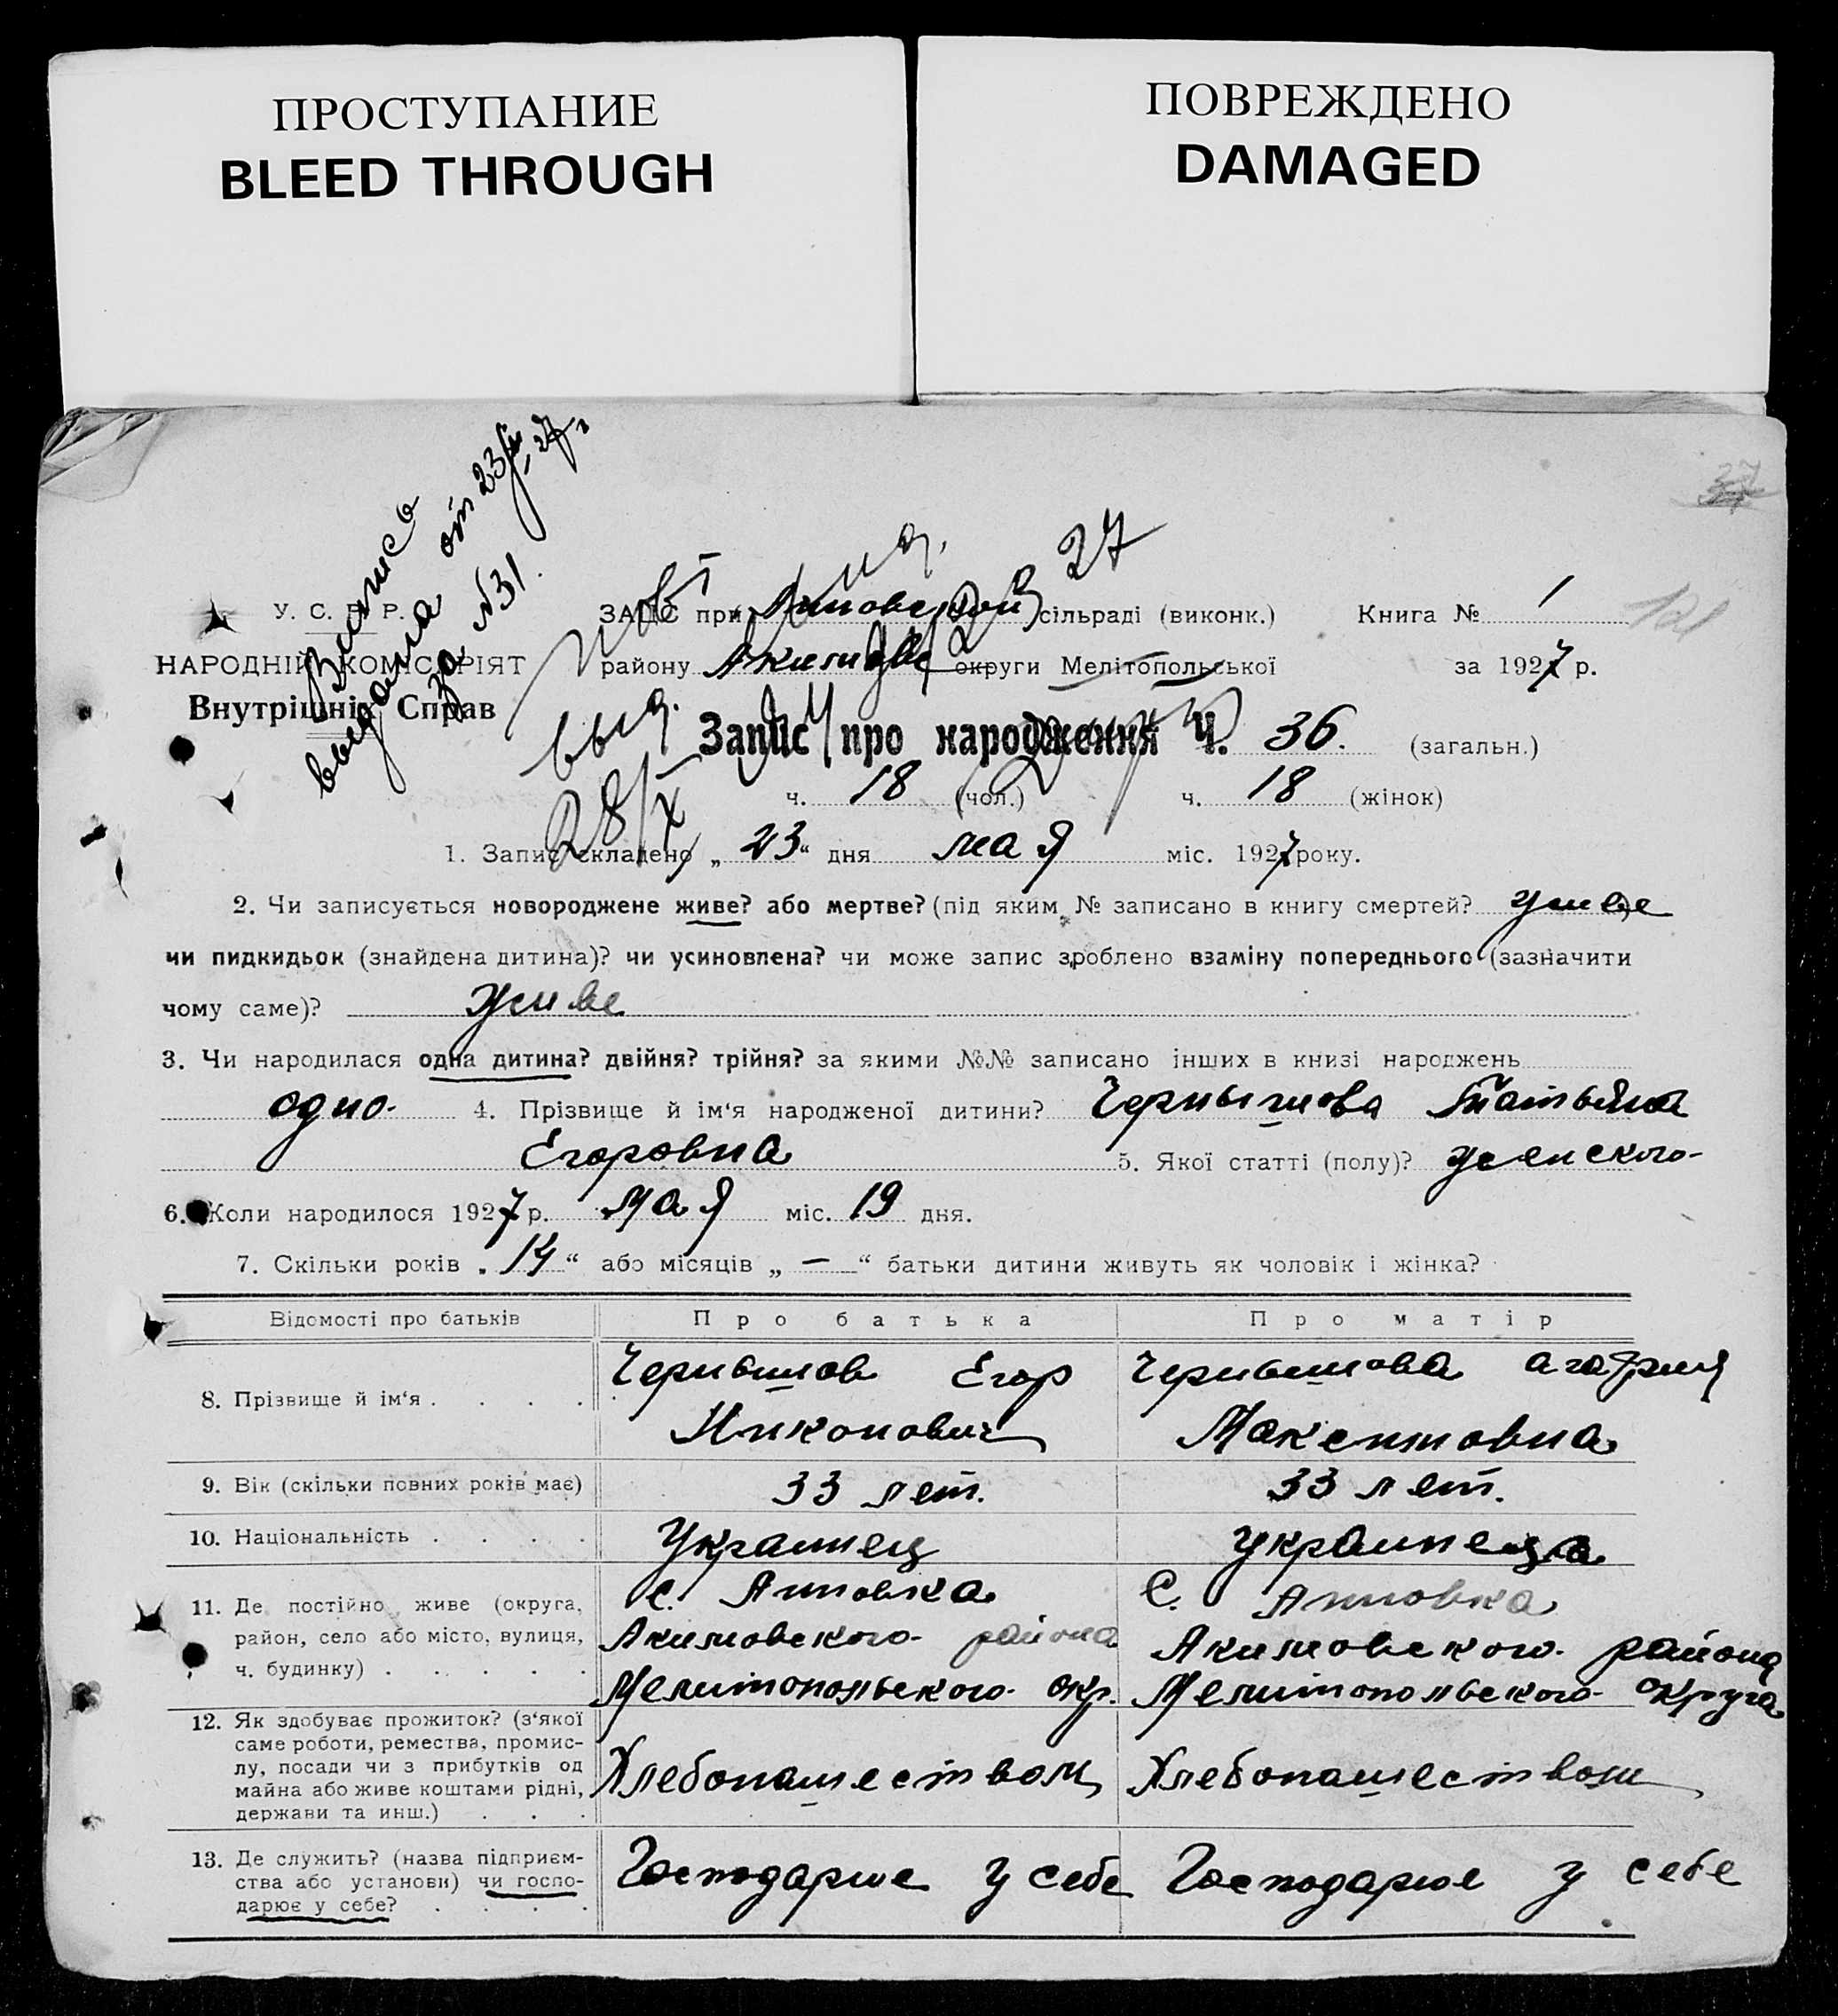 ПРОСТУПАНИЕ
BLEED THROUGH
ПОВРЕЖДЕНО
DAMAGED
Выпись
выдана от 23/ -27 г
за №31.
27
У. С. Р. Р.
НАРОДНІЙ КОМІСАРІЯТ
Внутрішніх Справ
ЗАПИС при Анновской сільраді (виконк.)
Книга № 1
району Акимовс округи Мелітопольської
за 1927 р.
Запис про народження Ч. 36. (загальн.)
выд.
28/X
ч. 18 (чол.) ч. 18 (жінок)
1. Запис складено „ 23 “ дня мая міс. 1927 року.
2. Чи записується новороджене живе? або мертве? (під яким № записано в книгу смертей? живе
чи пидкидьок (знайдена дитина)? чи усиновлена? чи може запис зроблено взаміну попереднього (зазначити
чому саме)? живе
3. Чи народилася одна дитина? двійня? трійня? за якими №№ записано інших в книзі народжень
одно. 4. Прізвище й ім‘я народженої дитини? Чернышова Татьяна
Егоровна 5. Якої статті (полу)? женского
6. Коли народилося 1927 р. мая міс. 19 дня.
7. Скільки років „ 14 “ або місяців „ — “ батьки дитини живуть як чоловік і жінка?
Відомості про батьків Про батька Про матір
8. Прізвище й ім‘я . . . .
Чернышов Егор
Никонович
Чернышова Агафия
Максимовна
9. Вік (скільки повних років має) 33 лет. 33 лет.
10. Національність . . . . Украинец украинеца
11. Де постійно живе (округа,
район, село або місто, вулиця,
ч. будинку) . . . . .
с. Анновка
Акимовского района
Мелитопольского окр.
с. Анновка
Акимовского района
Мелитопольского округа
12. Як здобуває прожиток? (з‘якої
саме роботи, ремества, промис-
лу, посади чи з прибутків од
майна або живе коштами рідні,
держави та инш.) . . .
Хлебопашеством
Хлебопашеством
13. Де служить? (назва підприєм-
ства або установи) чи госпо-
дарює у себе? . . . .
Господарює у себе
Господарює у себе